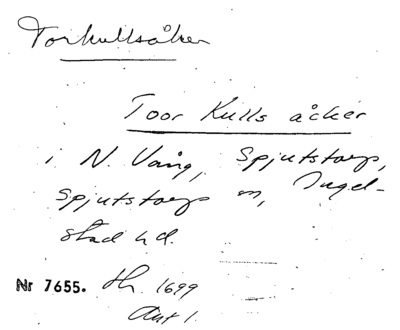 Torkullsåker
Toor Kulls åcker
i N. Vång, Spjutstorp,
Spjutstorps sn, Ingel-
stad hd.
Nr 7655. Lh. 1699
Ant 1.